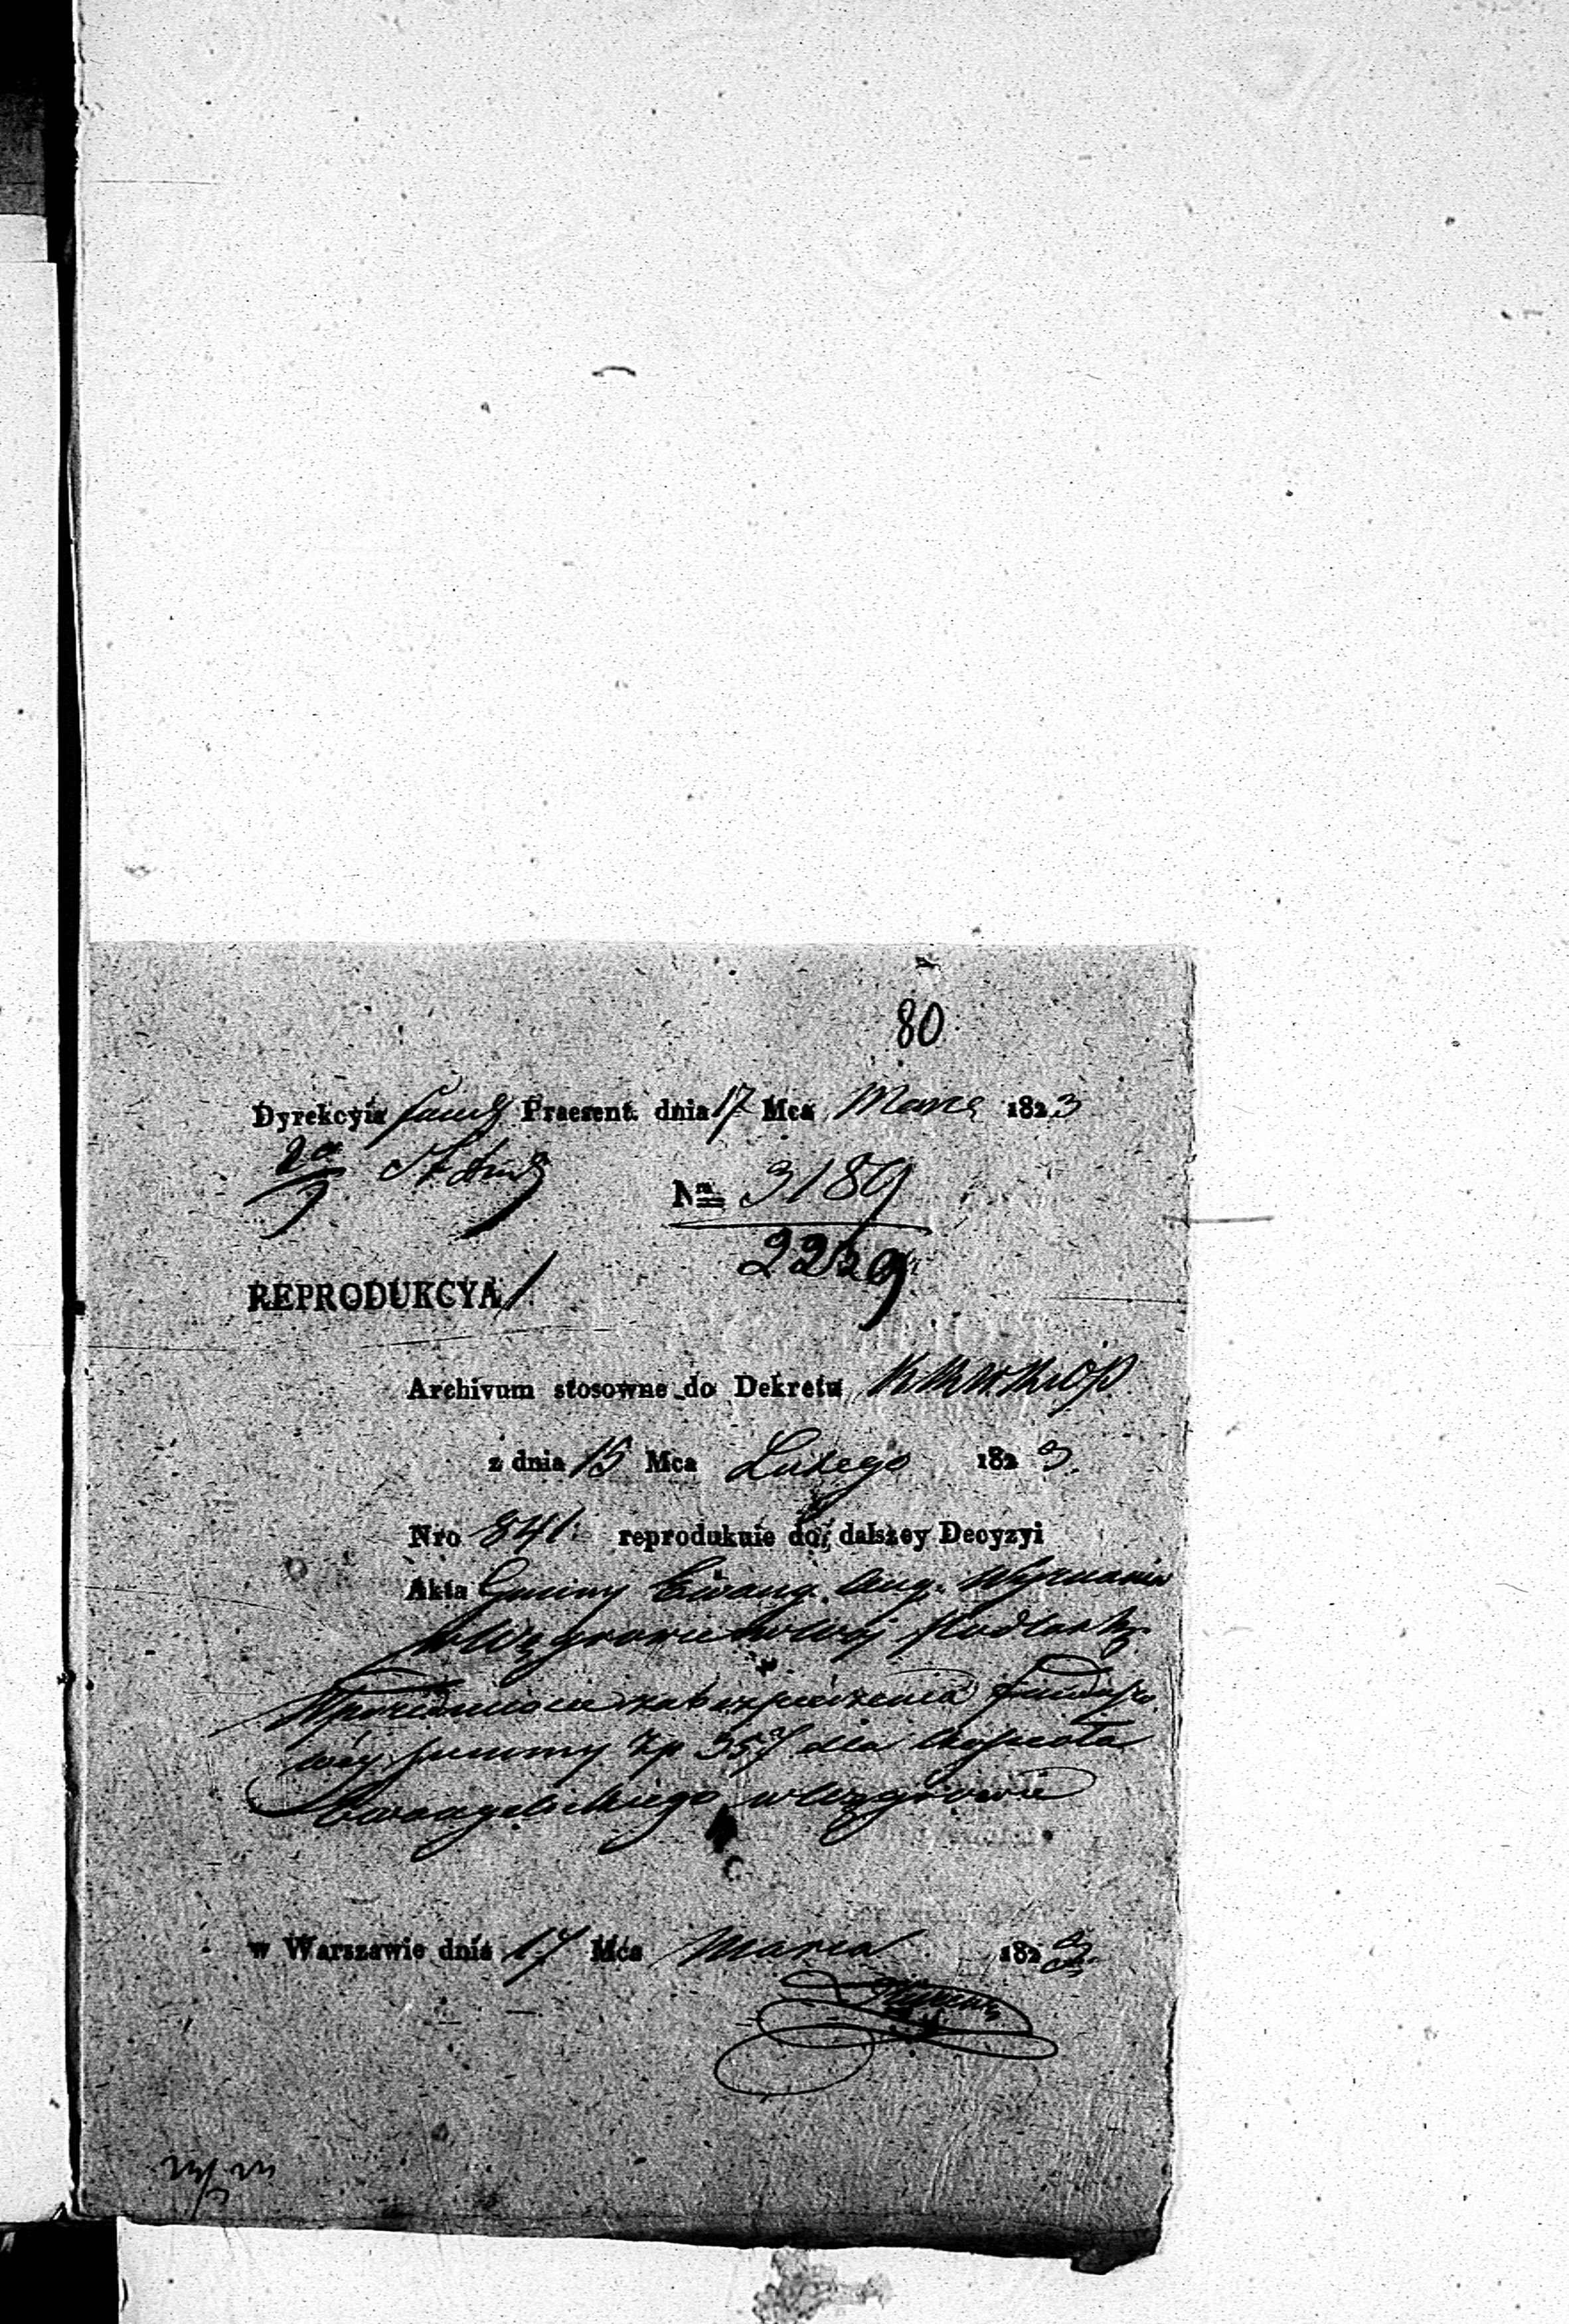 80
Dyrekcyia Praesent. dnia 17 Mca Marca 1823
Nro 3189
2229
REPRODUKCYA
Archivum stosowne do Dekretu
z dnia 15 Mca Lutego 1823.
Nro 841. reprodukuie do dalszey Decyzyi
Akta Gminy Ewang. Aug. Wyznania
w Węgrowie w Woj
zabezpieczenia
wéy summy Zp 357 dla
Ewangelickiego w Węgrowie
w Warszawie dnia 17 Mca Marca 1823